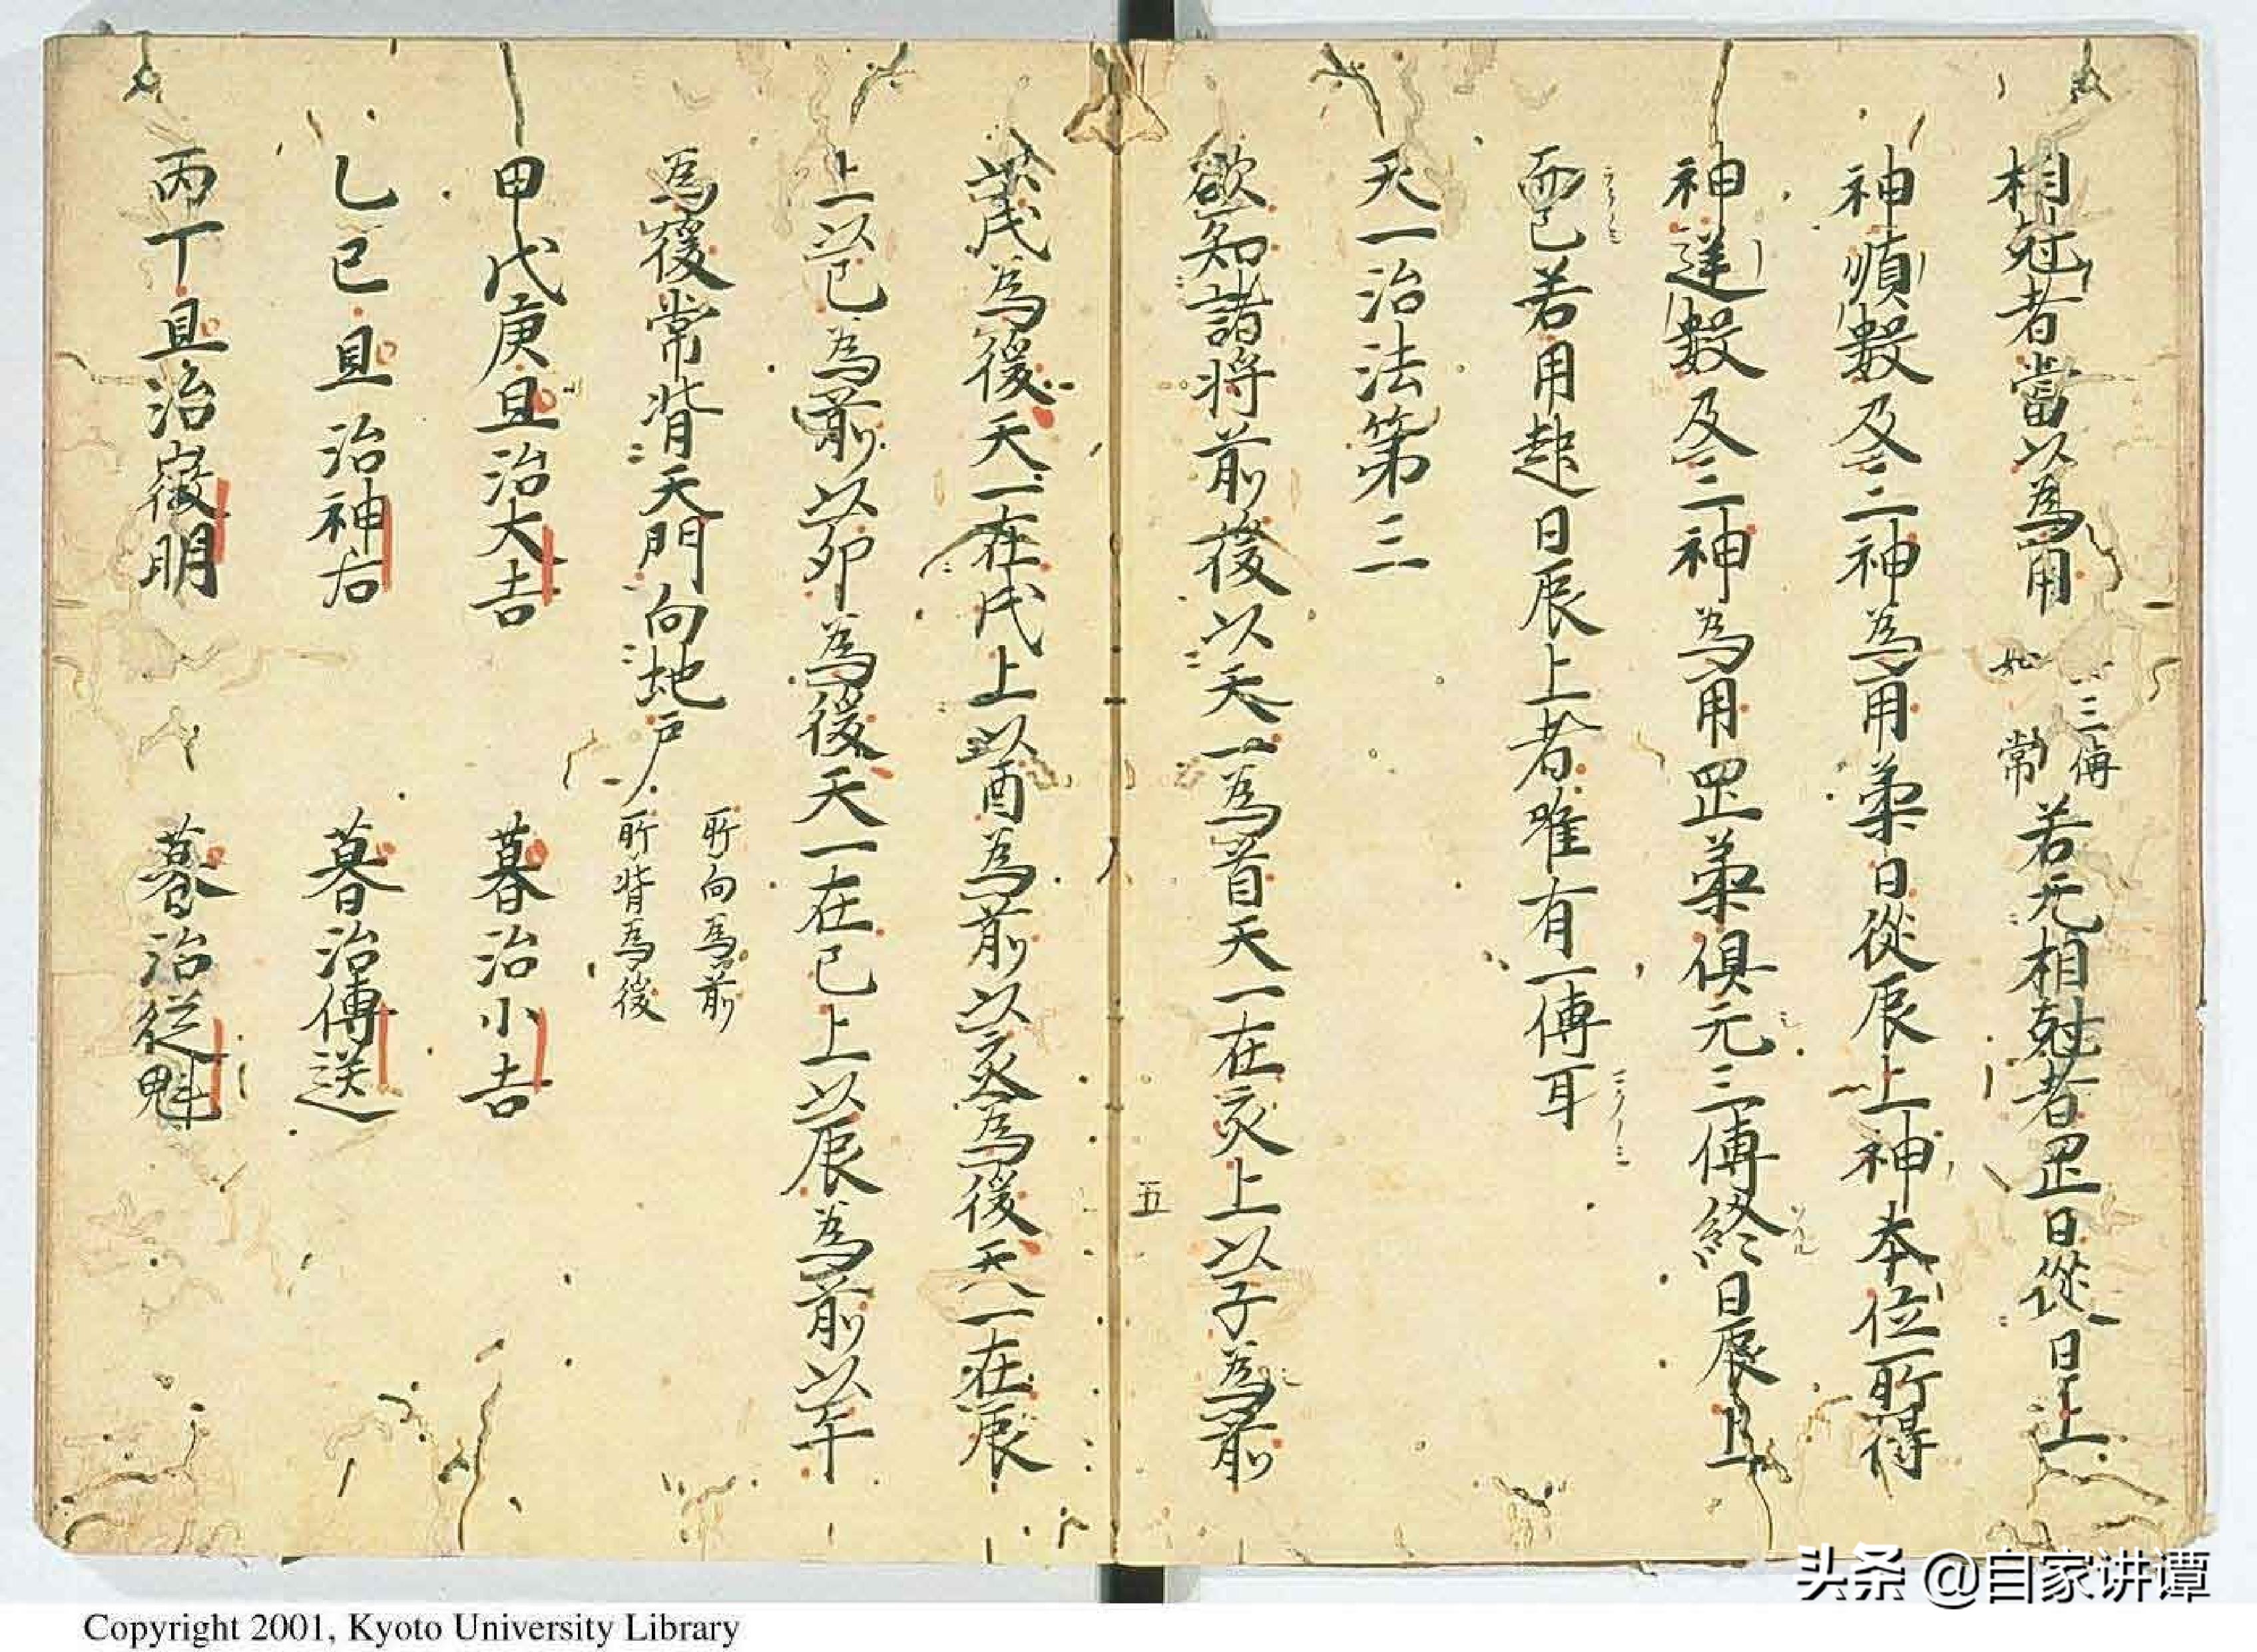 相尅者當以為用 如 三傳 常 若无相尅者罡日從日上
神順數及今二神為用柔日從辰上神本位所得
神逆數及今二神為用罡柔俱元三傳終日辰上
而已若用起日辰上者唯有一傳耳
天一治法第三
欲知諸將前後以天一為首天一在亥上以子為前
以戌為後天一在戌上以酉為前以亥為後天一在辰
上以巳為前以卯為後天一在巳上以辰為前以午
為後常背天門向地戶 所向為前 所背為後
甲戊庚旦治大吉 暮治小吉
乙己旦治神后 暮治傳送
丙丁旦治徵明 暮治從魁
五
头条 @自家讲谭
Copyright 2001, Kyoto University Library